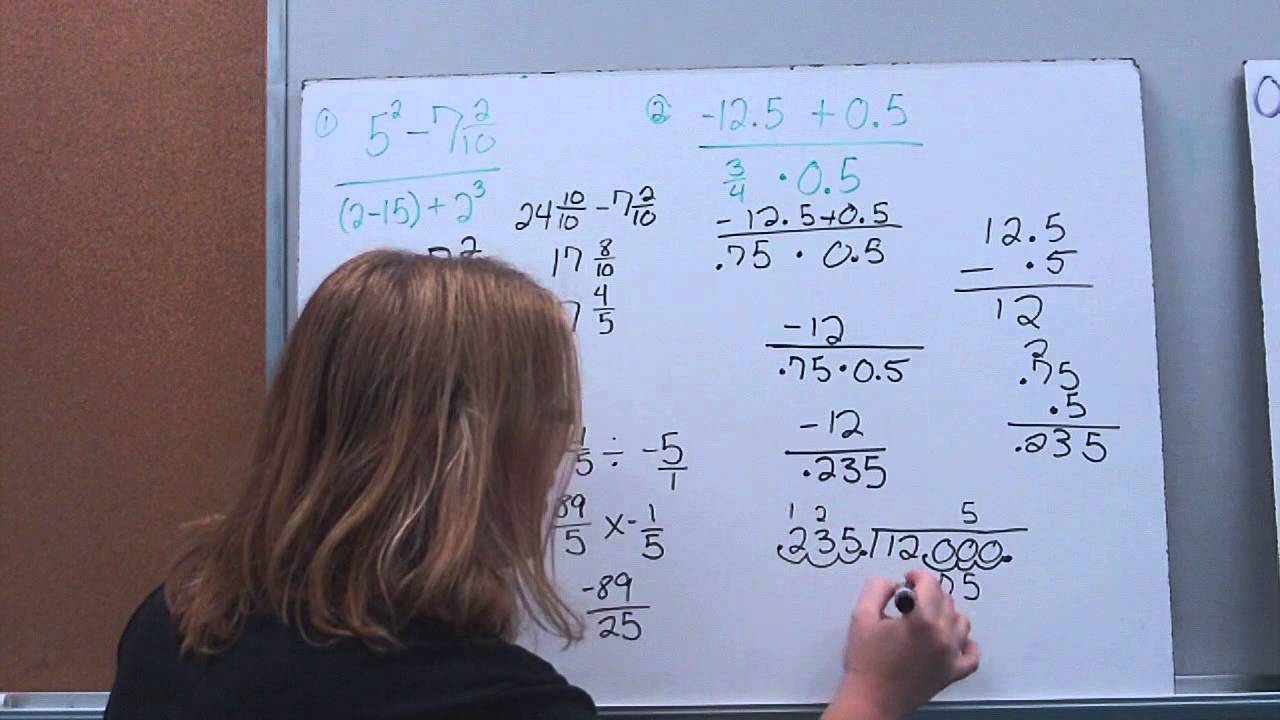 ① 5² - 7 2/10
(2-15) + 2³
24 10/10 - 7 2/10
17 8/10
7 4/5
÷ -5/1
89/5 x - 1/5
-89/25
② -12.5 + 0.5
3/4 · 0.5
-12.5+0.5
.75 · 0.5
-12
.75·0.5
-12
.235
1 2
5
235. 12.000.
5
12.5
- .5
12
2
.75
.5
.235